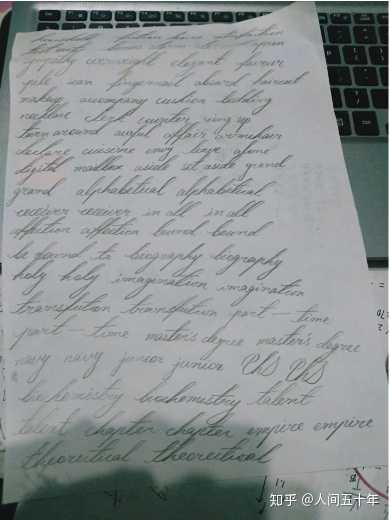 sympathy overweight elegant favour
pile scan fingernail absurd haircut
makeup accompany cushion bedding
necklace clerk counter ring up
turn around awful affair armchair
declare cuisine envy leave alone
digital mailbox aside set aside grand
grand alphabetical alphabetical
receiver receiver in all in all
affection affection bound bound
be bound to biography biography
holy holy imagination imagination
transfution transfution part-time
part-time master's degree master's degree
navy navy junior junior PhD PhD
biochemistry biochemistry talent
talent chapter chapter empire empire
theoretical theoretical
知乎 @人间五十年